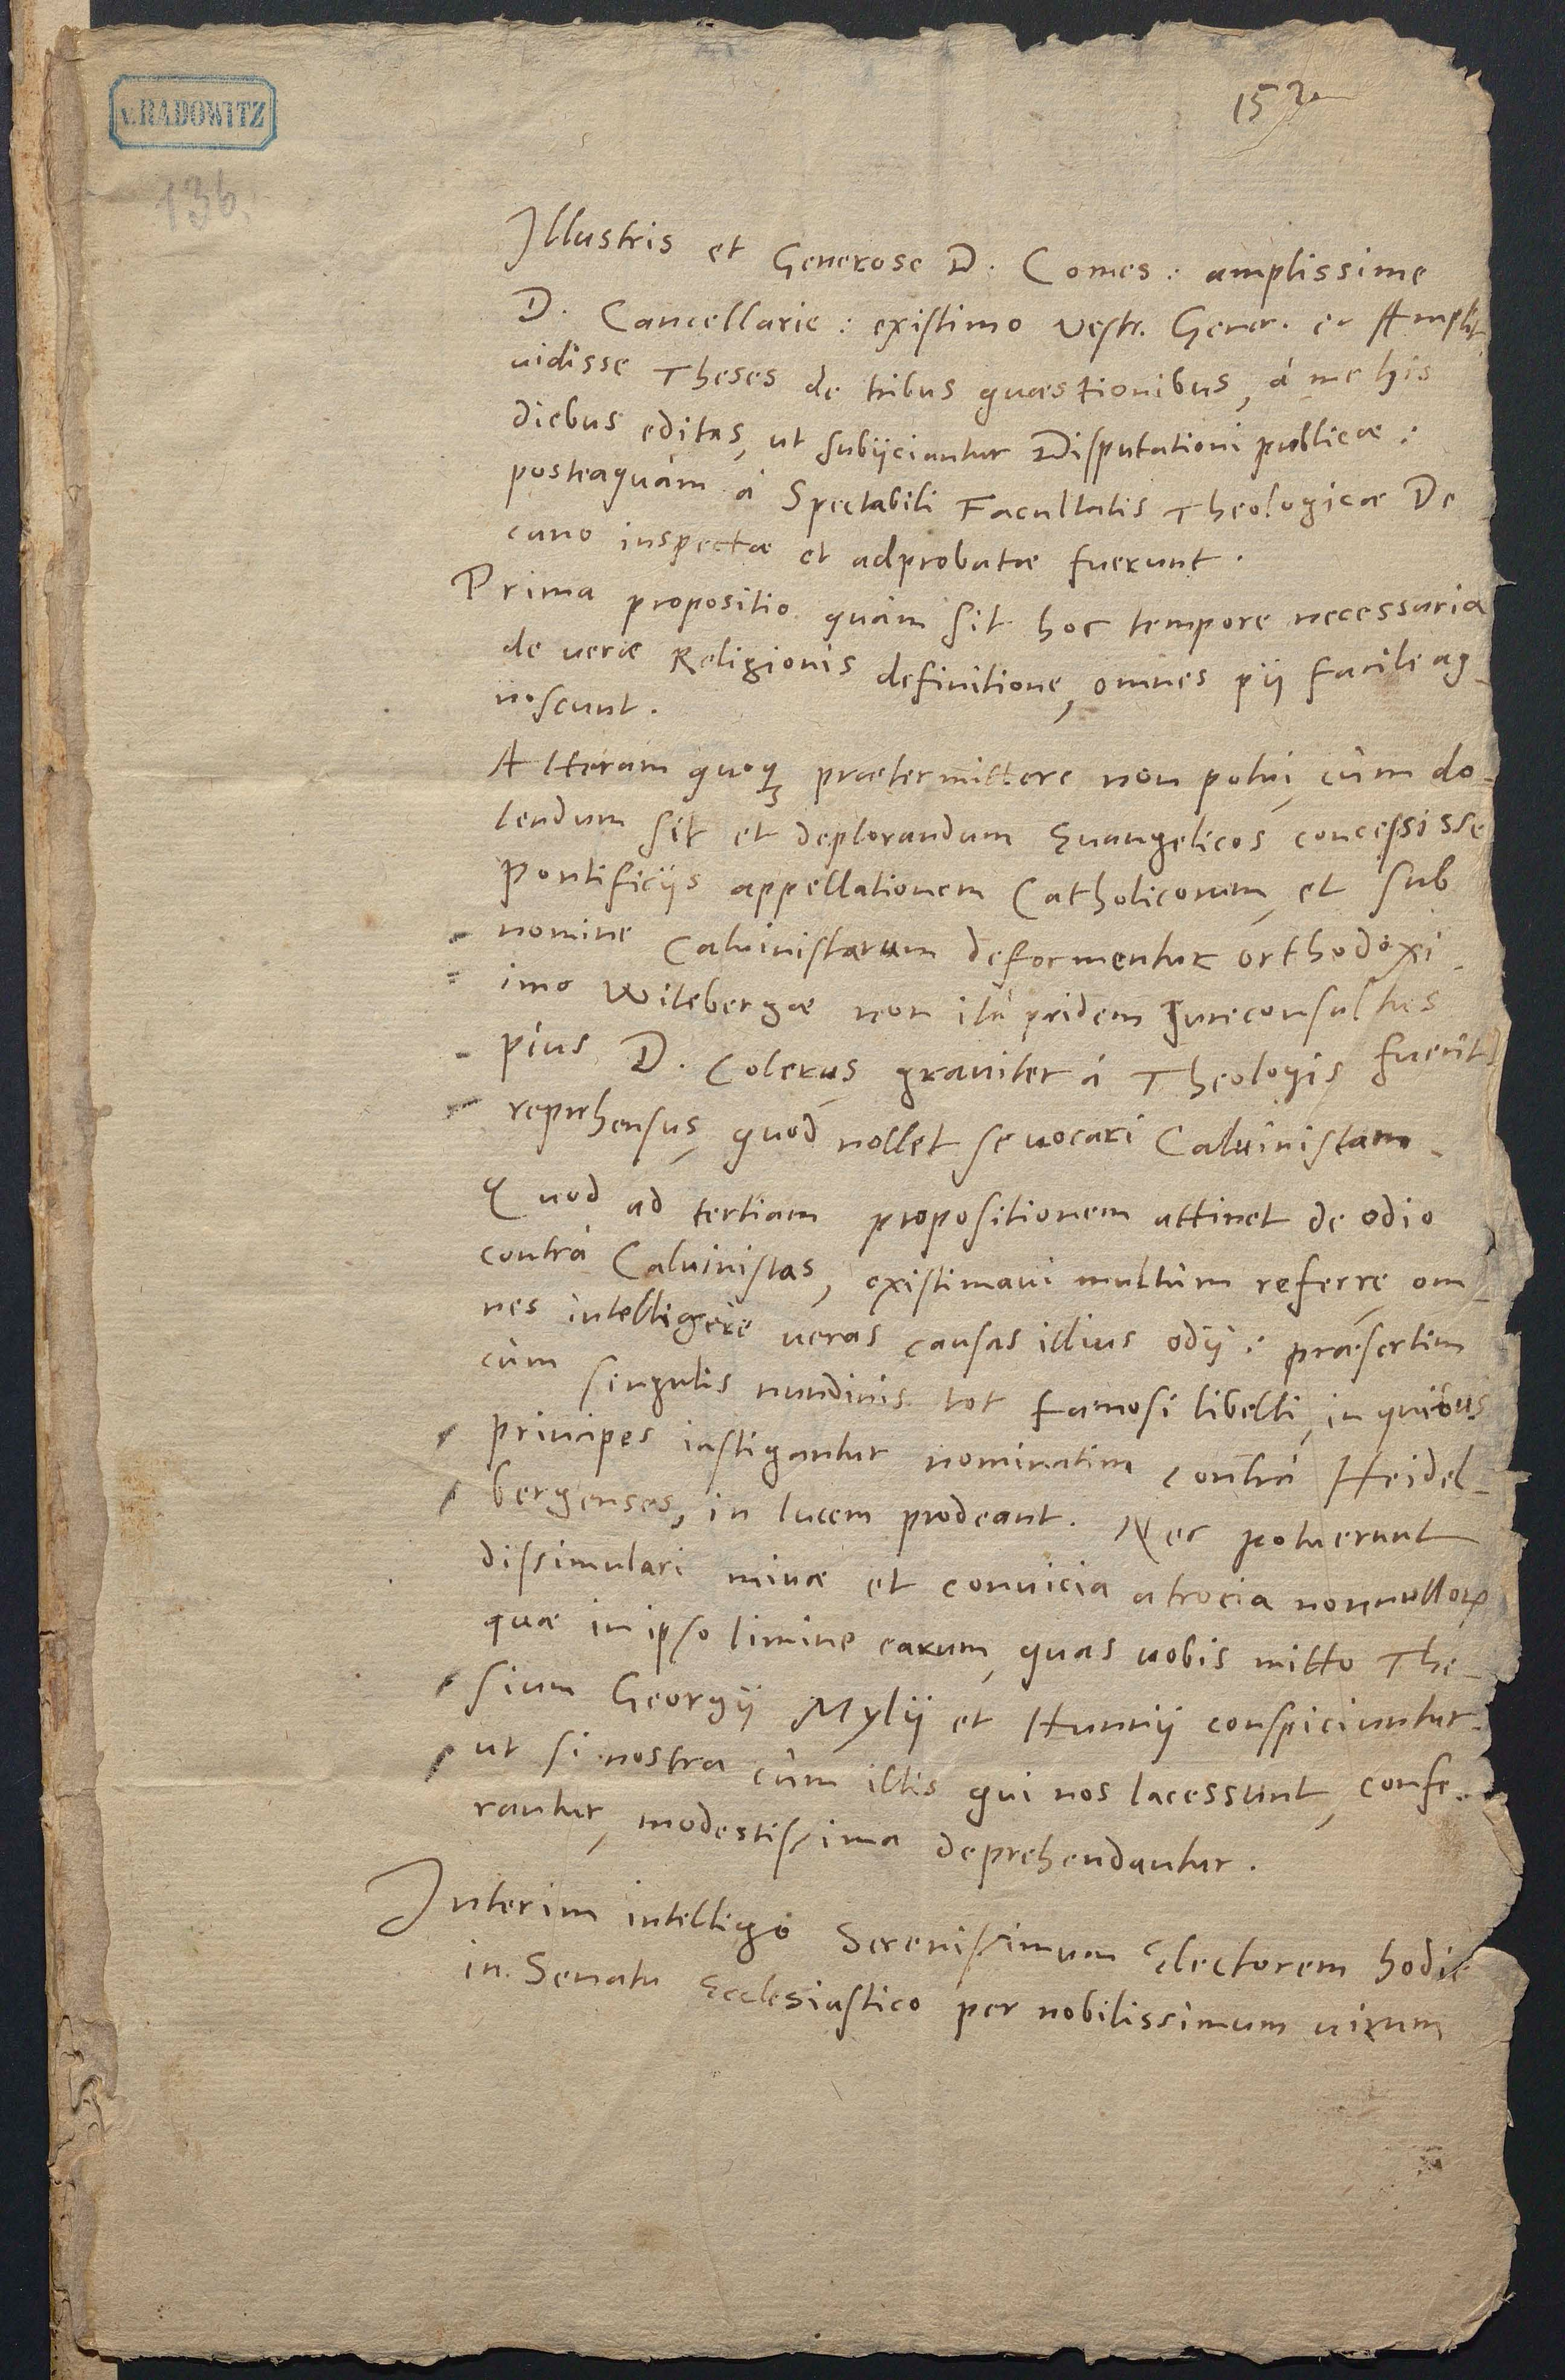 v. RADOWITZ
136.
Illustris et Generose D. Comes: amplissime
D. Cancellarie: existimo vestr. Gener. et Amplit.
uidisse Theses de tribus quaestionibus, à me his
diebus editas, ut subijciantur Disputationi publicae:
posteaquàm à Spectabili Facultatis Theologicae De
cano inspectae et adprobatae fuerunt.
Prima propositio quàm sit hoc tempore necessaria
de uerae Religionis definitione, omnes pij facile ag-
noscunt.
Alteram quoq; praetermittere non potui, cùm do-
lendum sit et deplorandum Euangelicos concessisse
Pontificijs appellationem Catholicorum, et sub
nomine Caluinistarum deformentur orthodoxi.
imò Witebergae non ità pridem Jureconsultus
pius D. Colerus, grauiter à Theologis fuerit
reprehensus, quod nollet se uocari Caluinistam.
Quod ad tertiam propositionem attinet de odio
contrà Caluinistas, existimaui multùm referre, om-
nes intelligere ueras causas illius odij: praesertim
cùm singulis nundinis tot famosi libelli, in quibus
principes instigantur nominatim contrà Heidel-
bergenses, in lucem prodeant. Nec potuerunt
dissimulari minae et conuicia atrocia nonnullorum
quae in ipso limine earum, quas uobis mitto The-
sium Georgij Mylij et Hunnij conspiciuntur.
ut si nostra cùm illis qui nos lacessunt, confe-
rantur, modestissima deprehendantur.
Interim intelligo Serenissimum Electorem hodie
in Senatu Ecclesiastico per nobilissimum uirum